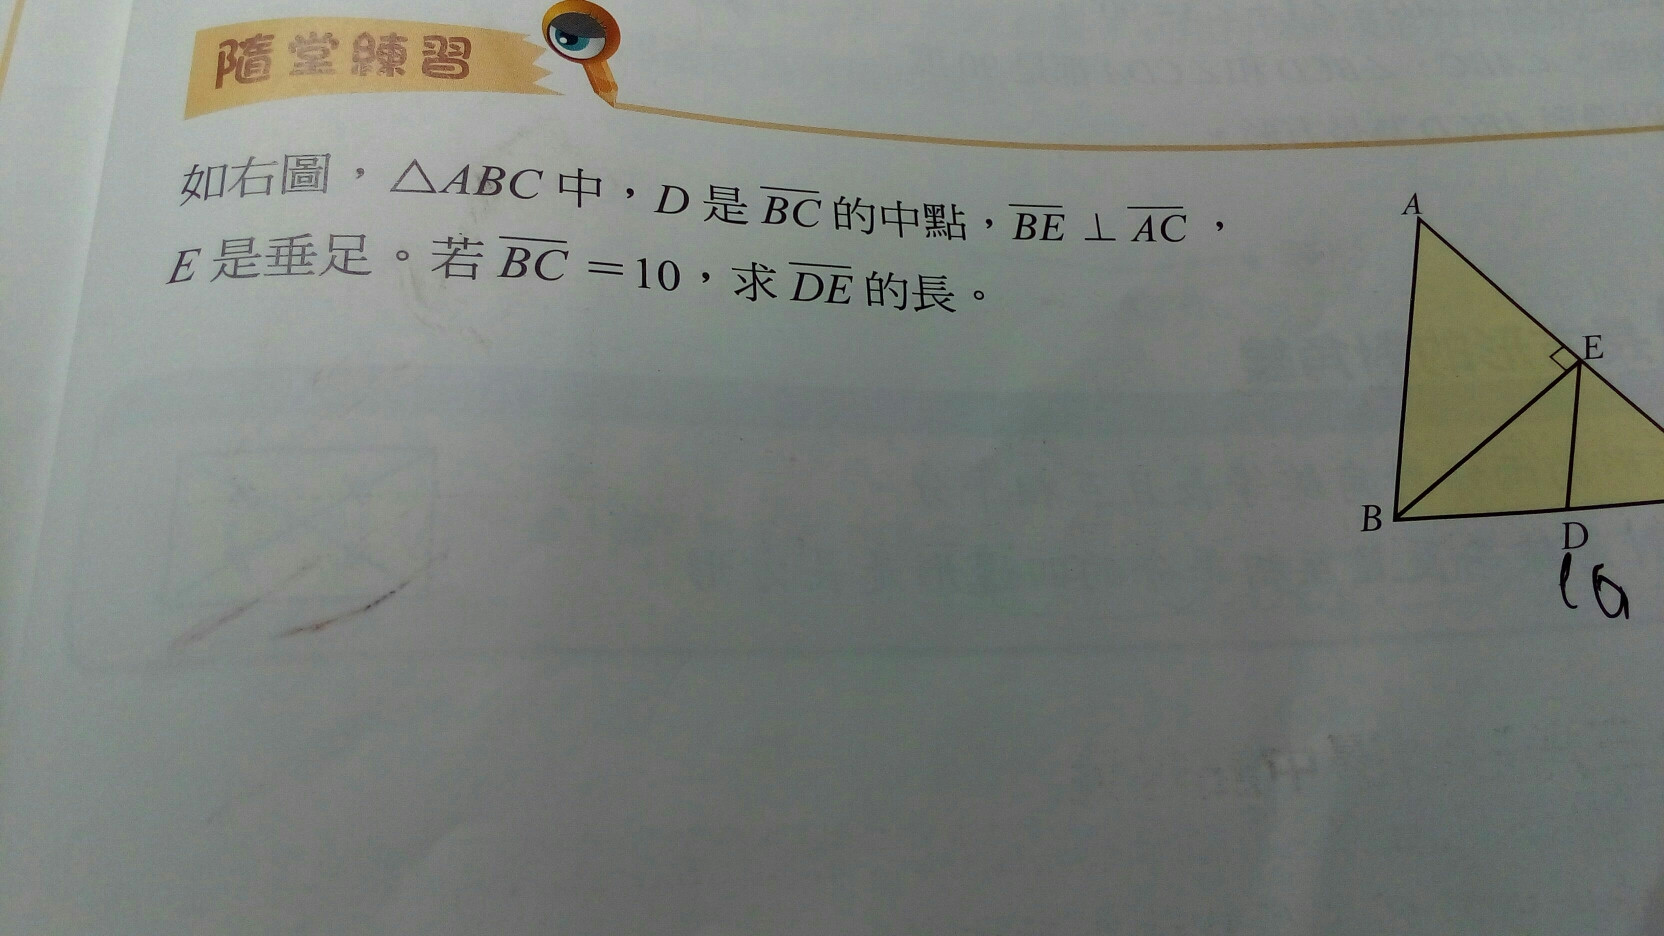 隨堂練習
如右圖，△ABC 中，D 是 BC 的中點，BE ⊥ AC，
E 是垂足。若 BC ＝10，求 DE 的長。
A
E
B
D
10